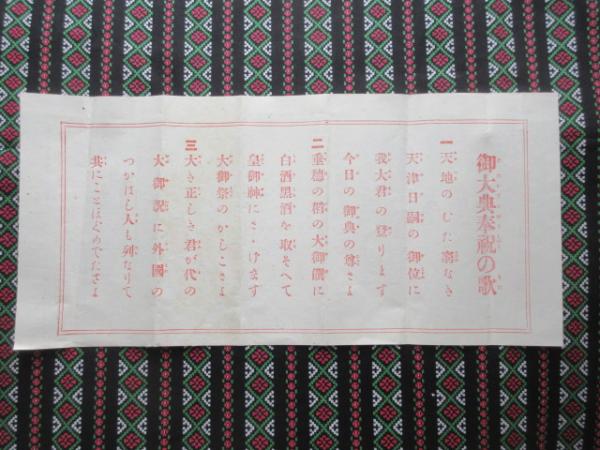 御大典奉祝の歌
一 天地のむた窮なき
天津日嗣の御位に
我大君の登ります
今日の御典の尊さよ
二 垂穂の稻の大御饌に
白酒黒酒を取そへて
皇御神にさゝげます
大御祭のかしこさよ
三 大き正しき君が代の
大御祝に外國の
つかはし人も列なりて
共にことほぐめでたさよ